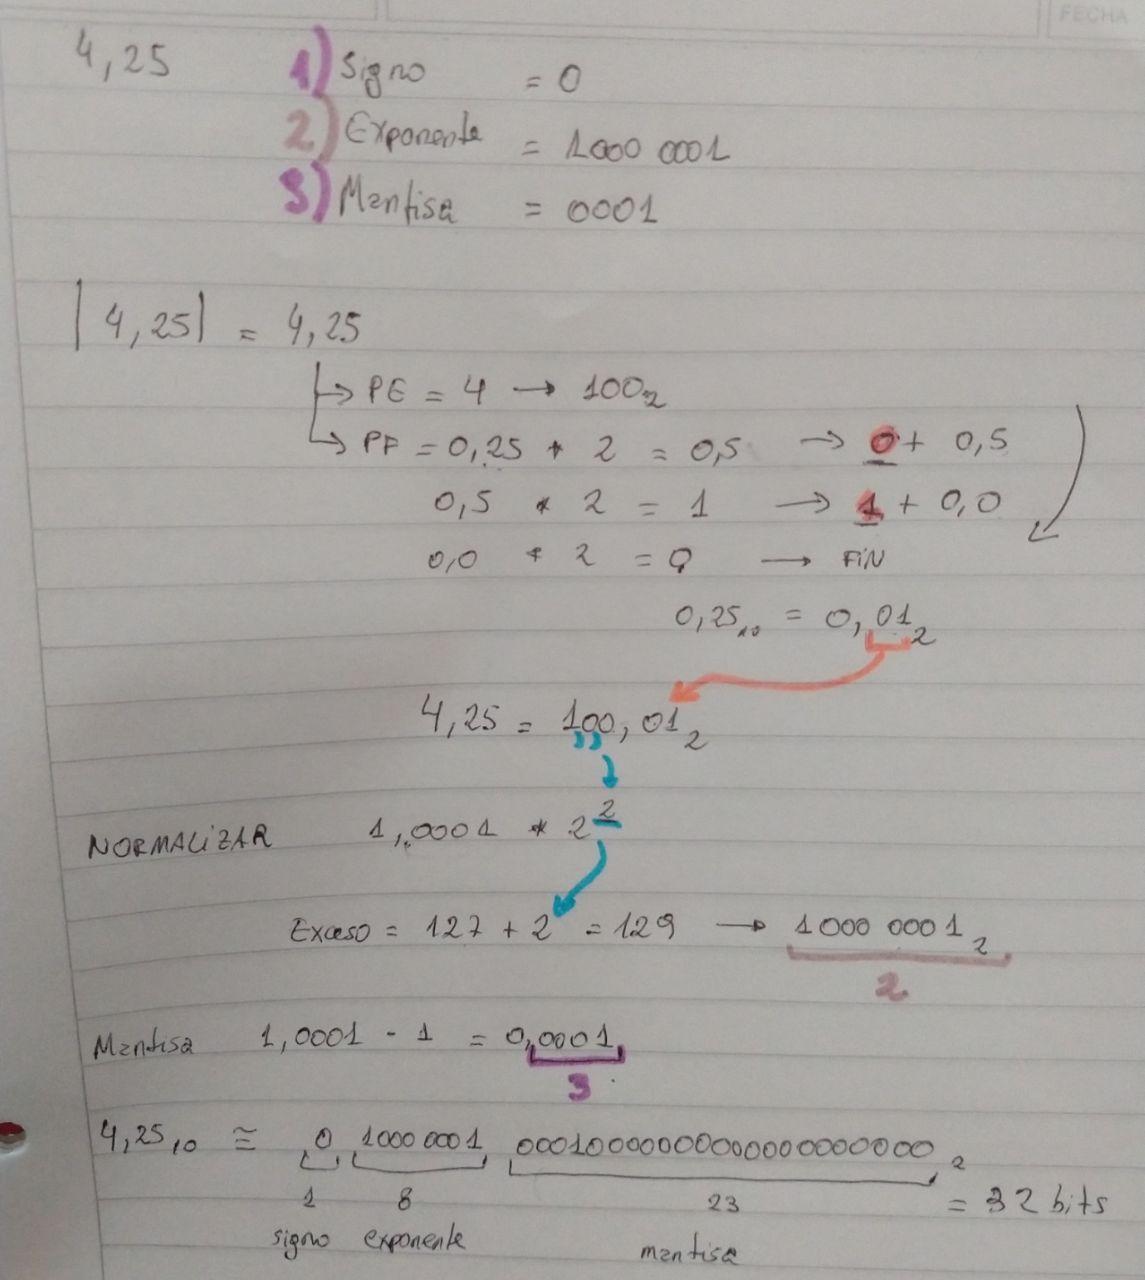 FECHA
4,25 1) Signo = 0
2) Exponente = 1000 0001
3) Mantisa = 0001
|4,25| = 4,25
→ PE = 4 → 100₂
→ PF = 0,25 * 2 = 0,5 → 0 + 0,5
0,5 * 2 = 1 → 1 + 0,0
0,0 * 2 = 0 → FiN
0,25₁₀ = 0,01₂
4,25 = 100,01₂
NORMALiZAR 1,0001 * 2²
Exceso = 127 + 2 = 129 → 1000 0001₂
2
Mantisa 1,0001 - 1 = 0,0001
3
4,25₁₀ ≅ 0 1000 0001 00010000000000000000000₂
1 8 23 = 32 bits
signo exponente mantisa